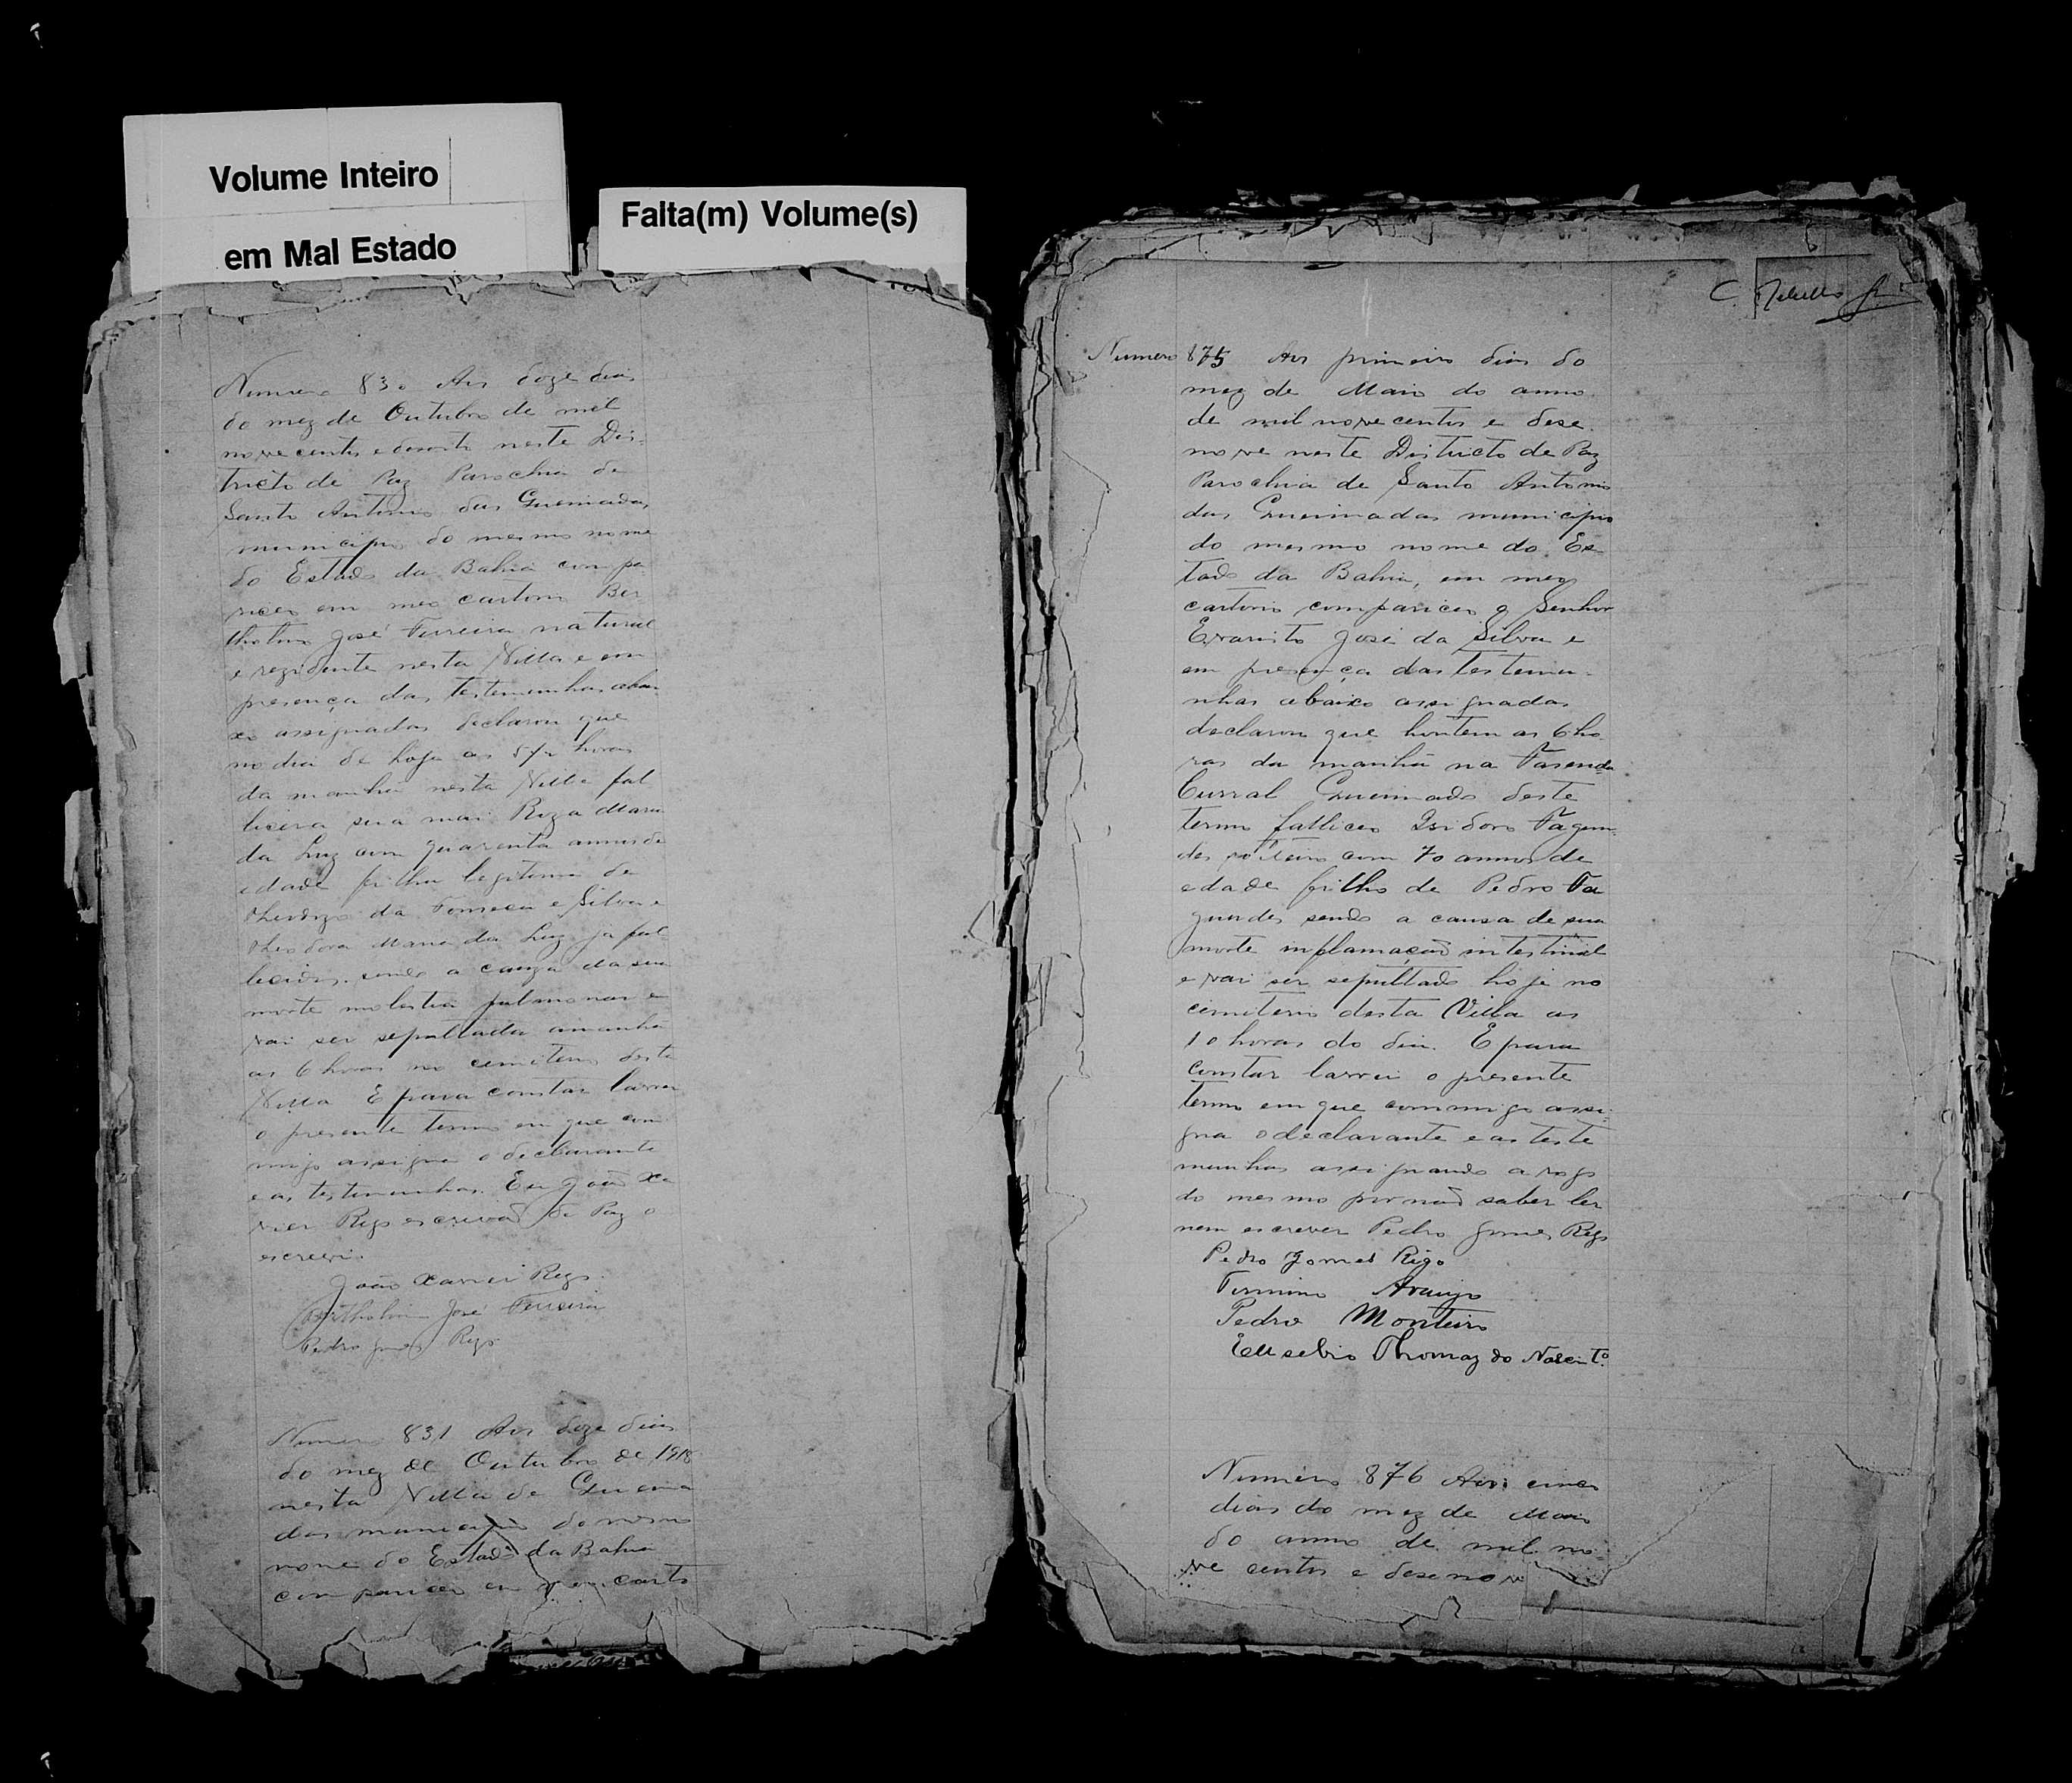 Volume Inteiro
em Mal Estado
Falta(m) Volume(s)
Numero 830 Aos doze dias
do mez de Outubro de mil
nove centos e desoito neste Dis-
tricto de Paz Parochia de
Santo Antonio das Queimadas
municipio do mesmo nome
do Estado da Bahia compa
riceo em meo cartorio Ber
tholino José Ferreira natural
e rezidente nesta Villa e em
presença das testemunhas abai
xo assignadas declarou que
no dia de hoje as 5 1/2 horas
da manhã nesta Villa fal
licera sua mai Roza Maria
da Luz com quarenta annos de
edade filha legitima de
da Fonseca e Silva e
Theodora Maria da Luz ja fal
lecidos. sendo a cauza da sua
morte molestia pulmonar e
vai ser sepultada amanhã
as 6 horas no cemiterio desta
Villa E para constar lavrei
o presente termo em que com
migo assigna o declarante
e as testemunhas. Eu João Xa
vier Rego escrivão de Paz o
escrevi.
João Xavier Rego.
Bertholino José Ferreira
Pedro Gomes Rego
Numero 831 Aos doze dias
do mez de Outubro de 1918
nesta Villa de Queima
das municipio do mesmo
nome do Estado da Bahia
compariceo em meo carto
Numero 875 Aos primeiro dias do
mez de Maio do anno
de mil nove centos e dese
nove neste Districto de Paz
Parochia de Santo Antonio
das Queimadas municipio
do mesmo nome do Es-
tado da Bahia, em meo
cartorio compariceo o Senhor
Evaristo José da Silva e
em presença das testemu-
nhas abaixo assignadas
declarou que hontem as 6 ho
ras da manhã na Fasenda
Curral Queimado deste
termo falliceo Isidoro Fagun
des solteiro com 70 annos de
edade filho de Pedro Fa
gundes sendo a causa de sua
morte inflamação intestinal
e vai ser sepultado hoje no
cemiterio desta Villa as
10 horas do dia. E para
constar lavrei o presente
termo em que commigo assi-
gna o declarante e as teste
munhas assignando a rogo
do mesmo por não saber ler
nem escrever Pedro Gomes Rego
Pedro Gomes Rego
Firmino Araujo
Pedro Monteiro
Eusebio Thomaz do Nascimto
Numero 876 Aos cinco
dias do mez de Maio
do anno de mil no-
ve centos e desenove